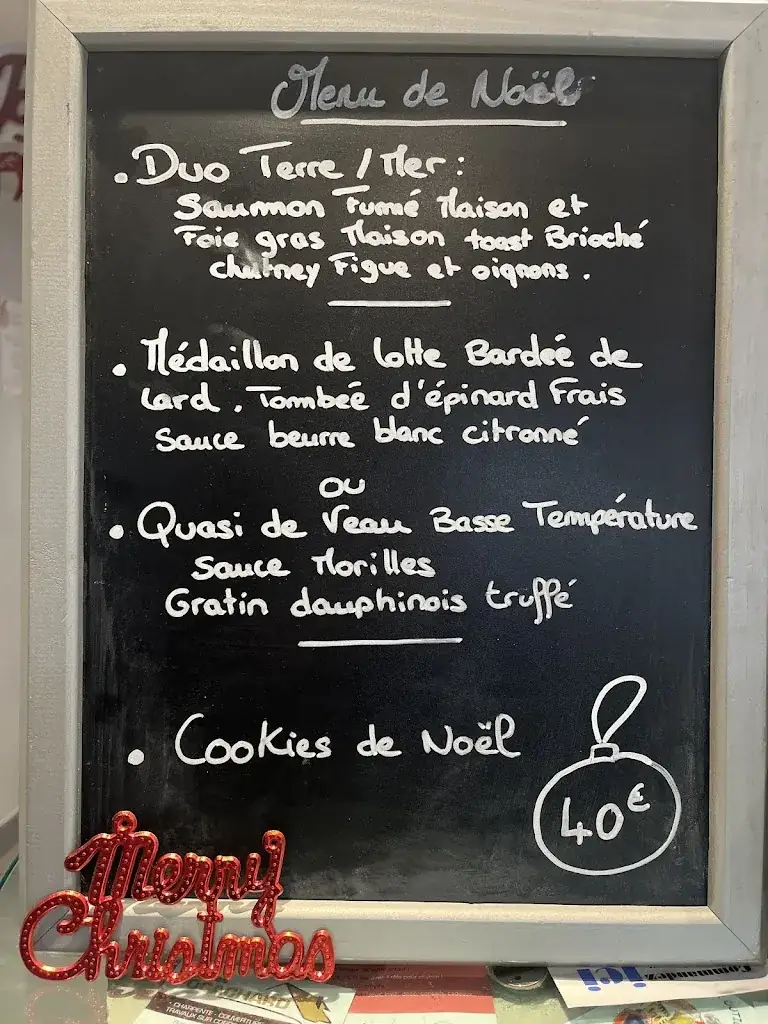 Menu de Noël
• Duo Terre / Mer :
Saumon Fumé Maison et
Foie gras Maison toast Brioché
chutney Figue et oignons .
• Médaillon de lotte Bardée de
lard . Tombée d'épinard Frais
Sauce beurre blanc citronné
ou
• Quasi de Veau Basse Température
Sauce Morilles
Gratin dauphinois truffé
• Cookies de Noël
40€
Merry
Christmas
Commandez
ici
CHARPENTE - COUVERTURE